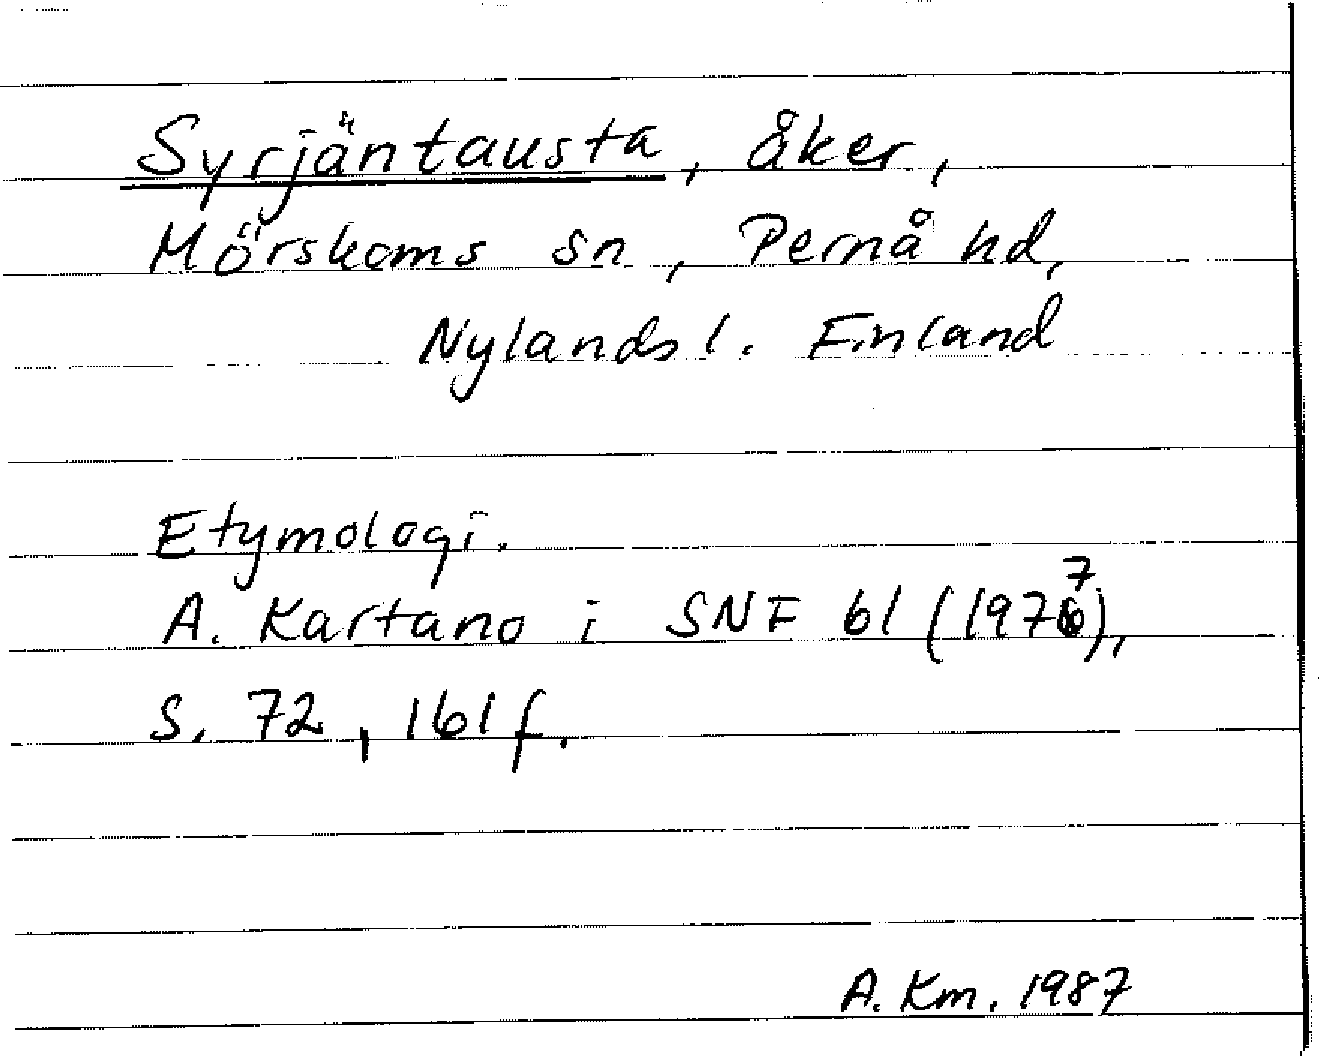 Syrjäntausta, åker,
Mörskoms sn, Pernå hd,
Nylands l. Finland
Etymologi.
A. Kartano i SNF 61 (1977),
s. 72, 161 f.
A. Km. 1987